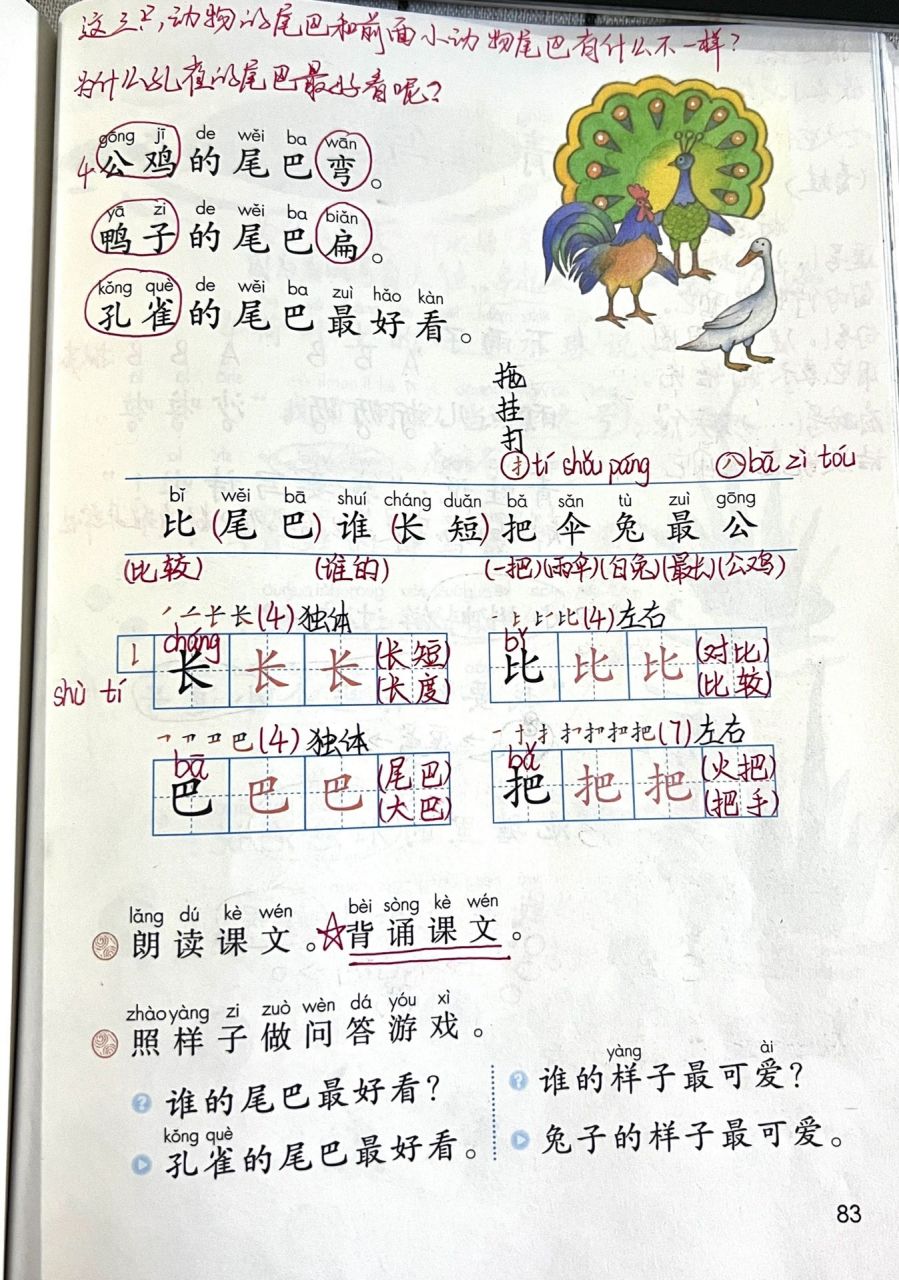 这三只,动物的尾巴和前面小动物尾巴有什么不一样?
为什么孔雀的尾巴最好看呢?
gōng jī de wěi ba wān
4 公鸡的尾巴弯。
yā zi de wěi ba biǎn
鸭子的尾巴扁。
kǒng què de wěi ba zuì hǎo kàn
孔雀的尾巴最好看。
拖
挂
打
扌tí shǒu páng 八bā zì tóu
bǐ wěi bā shuí cháng duǎn bǎ sǎn tù zuì gōng
比(尾巴)谁(长短)把伞兔最公
(比较) (谁的) (一把)(雨伞)(白兔)(最长)(公鸡)
(4)独体 (4)左右
cháng bǐ
长 长 长 (长短) 比 比 比 (对比)
shù tí (长度) (比较)
(4)独体 (7)左右
bā bǎ
巴 巴 巴 (尾巴) 把 把 把 (火把)
(大巴) (把手)
lǎng dú kè wén bèi sòng kè wén
朗读课文。☆背诵课文。
zhào yàng zi zuò wèn dá yóu xì
照样子做问答游戏。
yàng ài
? 谁的尾巴最好看? ? 谁的样子最可爱?
kǒng què
孔雀的尾巴最好看。 兔子的样子最可爱。
83